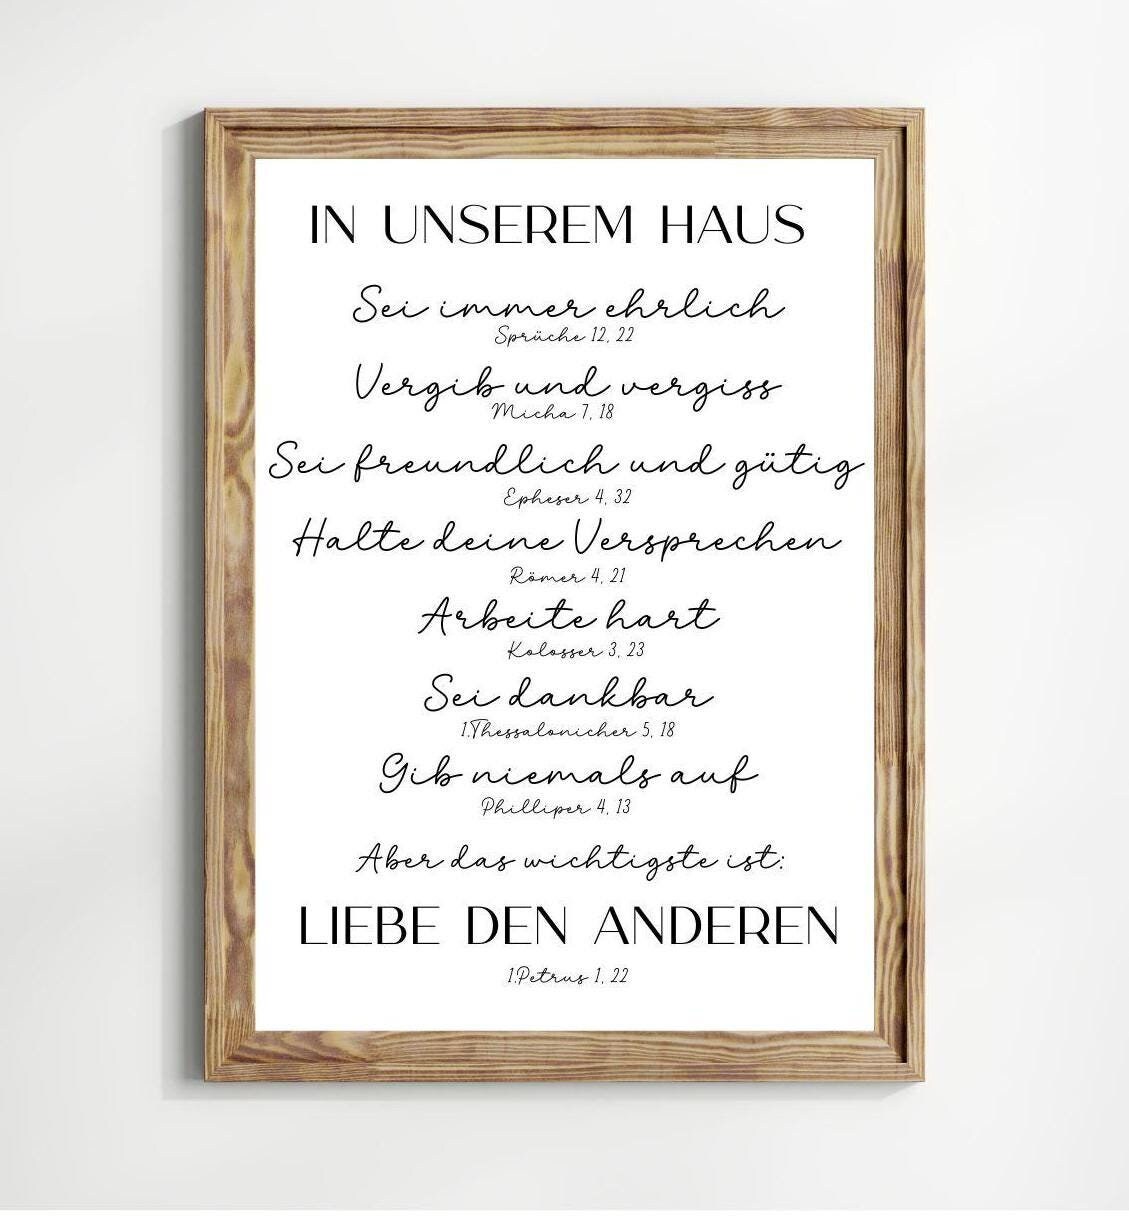 IN UNSEREM HAUS
Sei immer ehrlich
Sprüche 12, 22
Vergib und vergiss
Micha 7, 18
Sei freundlich und gütig
Epheser 4, 32
Halte deine Versprechen
Römer 4, 21
Arbeite hart
Kolosser 3, 23
Sei dankbar
1.Thessalonicher 5, 18
Gib niemals auf
Philliper 4, 13
Aber das wichtigste ist:
LIEBE DEN ANDEREN
1.Petrus 1, 22